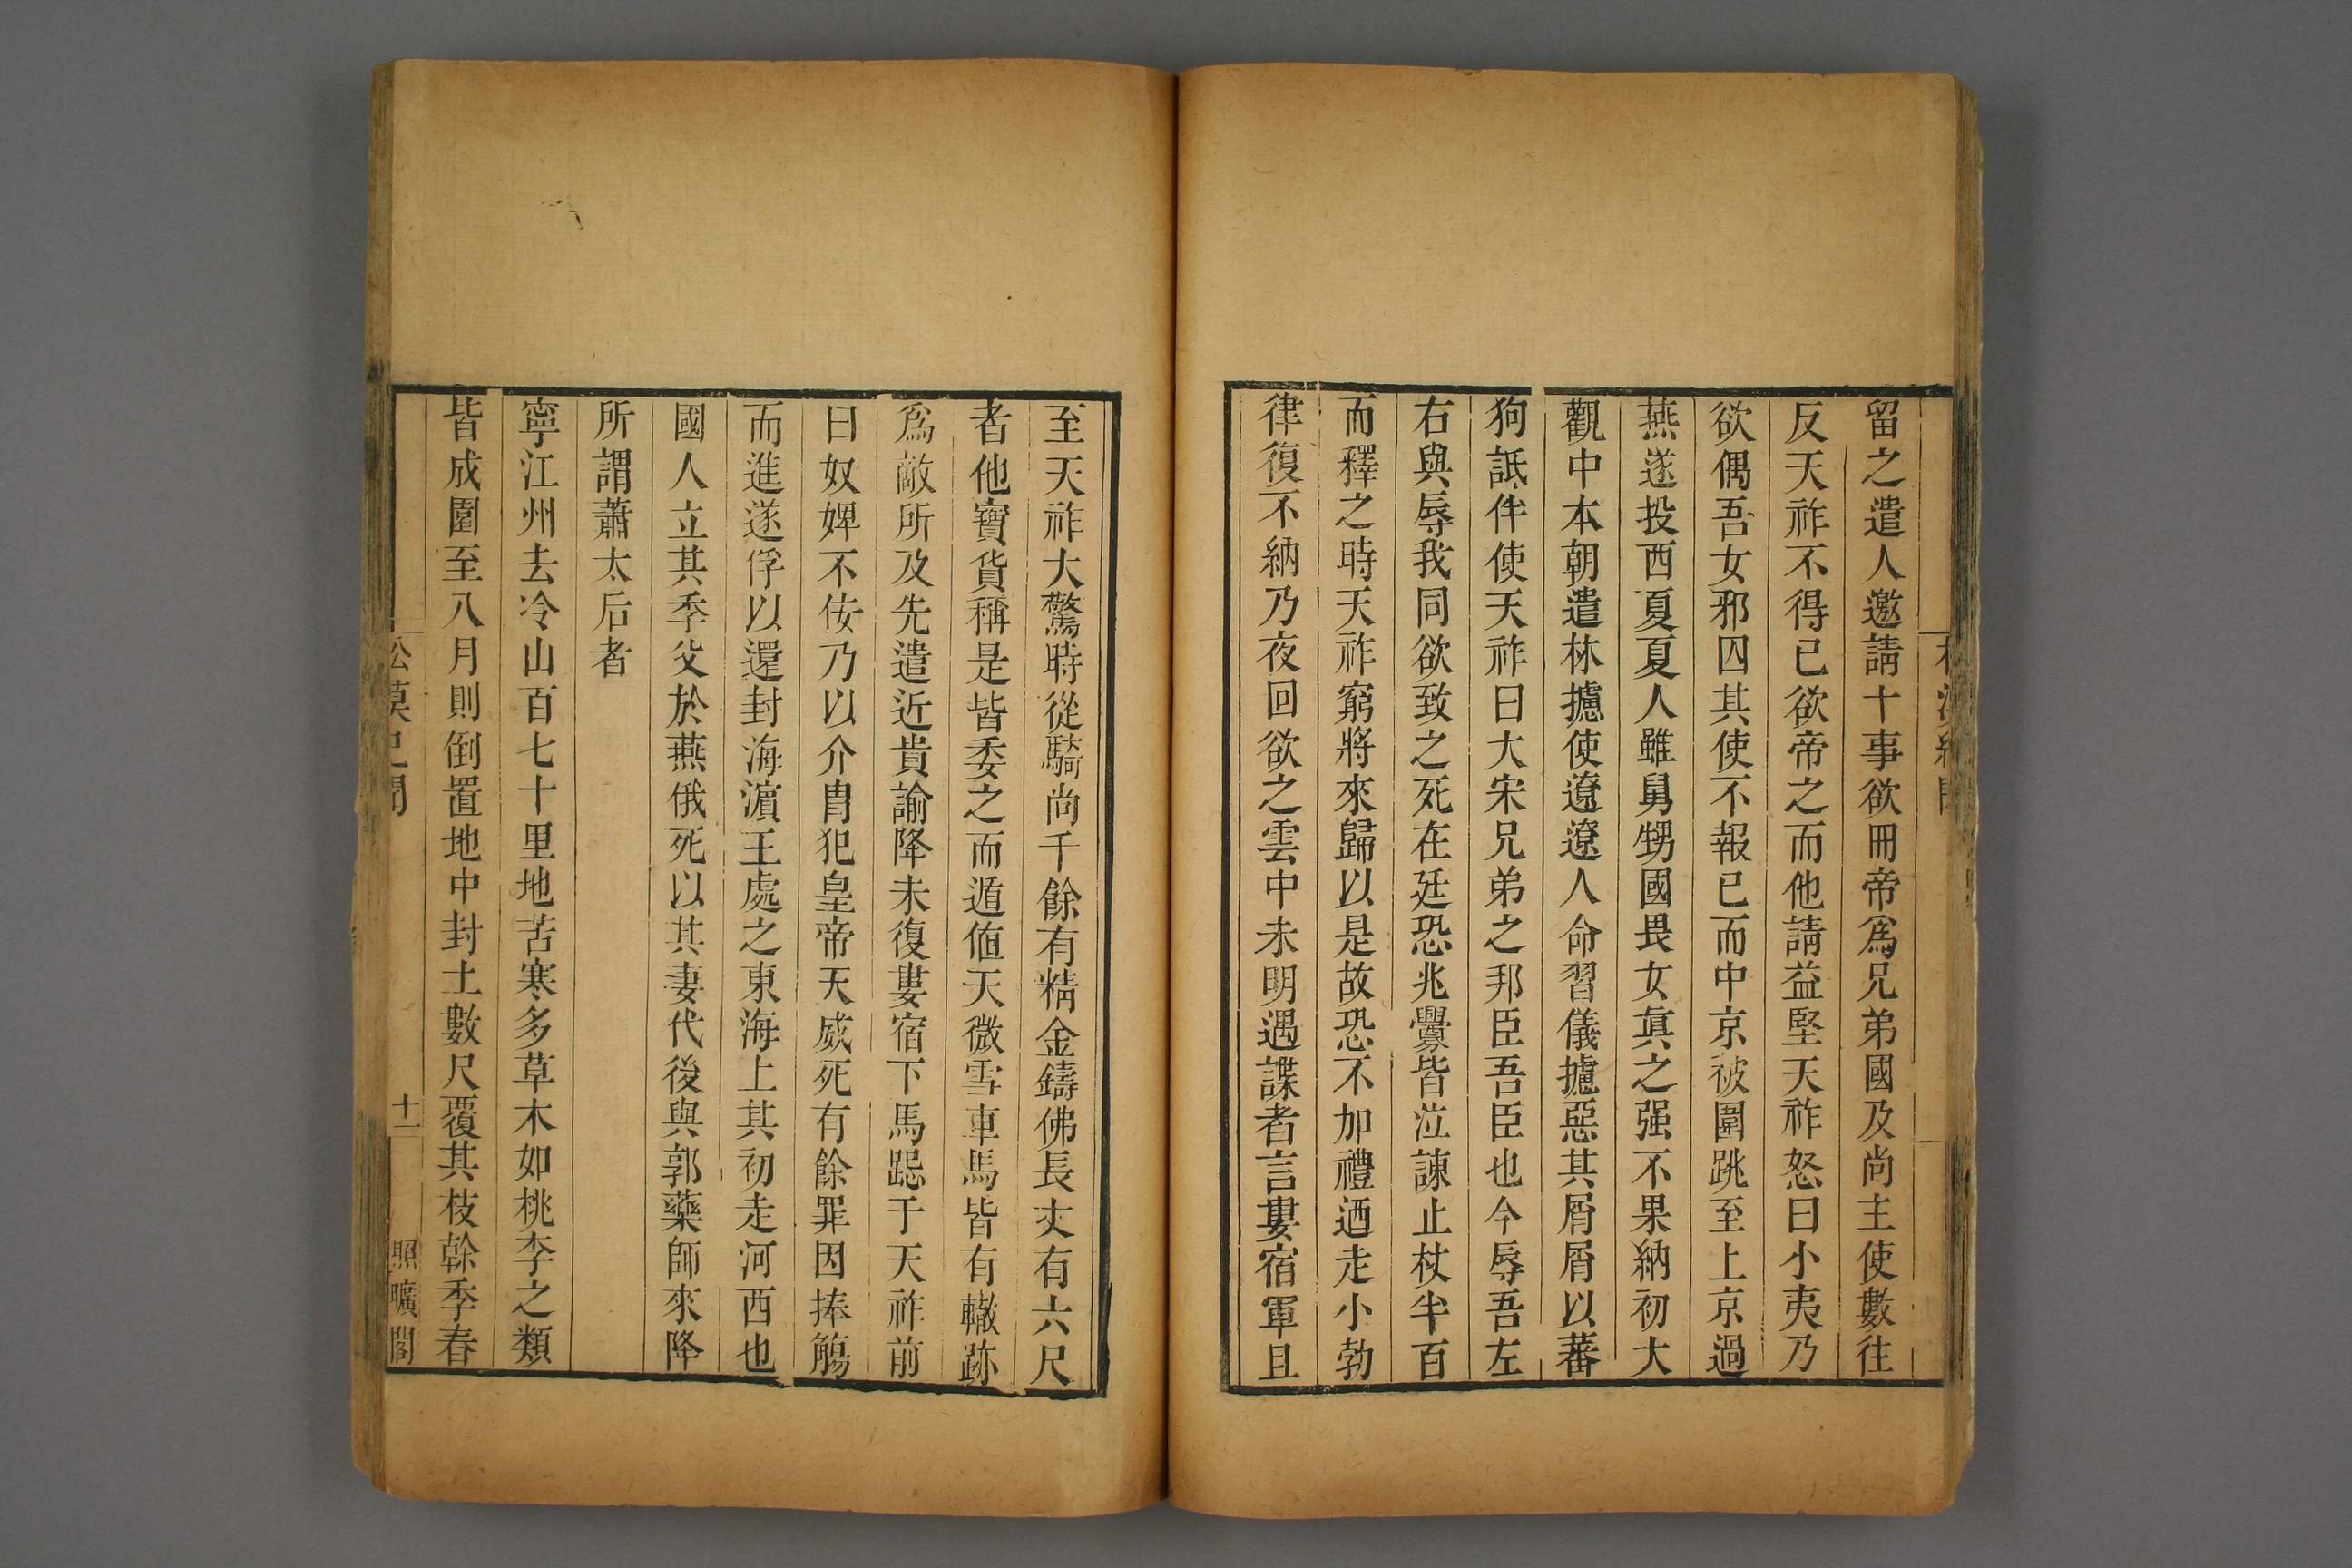 留之遣人邀請十事欲冊帝爲兄弟國及尚主使數往
反天祚不得已欲帝之而他請益堅天祚怒曰小夷乃
欲偶吾女邪囚其使不報已而中京被圍跳至上京過
燕遂投西夏夏人雖舅甥國畏女眞之强不果納初大
觀中本朝遣林攄使遼遼人命習儀攄惡其屑屑以蕃
狗詆伴使天祚曰大宋兄弟之邦臣吾臣也今辱吾左
右與辱我同欲致之死在廷恐兆釁皆泣諫止杖半百
而釋之時天祚窮將來歸以是故恐不加禮迺走小勃
律復不納乃夜回欲之雲中未明遇諜者言婁宿軍且
至天祚大驚時從騎尚千餘有精金鑄佛長丈有六尺
者他寶貨稱是皆委之而遁值天微雪車馬皆有轍跡
爲敵所及先遣近貴諭降未復婁宿下馬跽于天祚前
曰奴婢不佞乃以介胄犯皇帝天威死有餘罪因捧觴
而進遂俘以還封海濱王處之東海上其初走河西也
國人立其季父於燕俄死以其妻代後與郭藥師來降
所謂蕭太后者
寧江州去冷山百七十里地苦寒多草木如桃李之類
皆成園至八月則倒置地中封土數尺覆其枝榦季春
松漠紀聞
十一
照曠閣